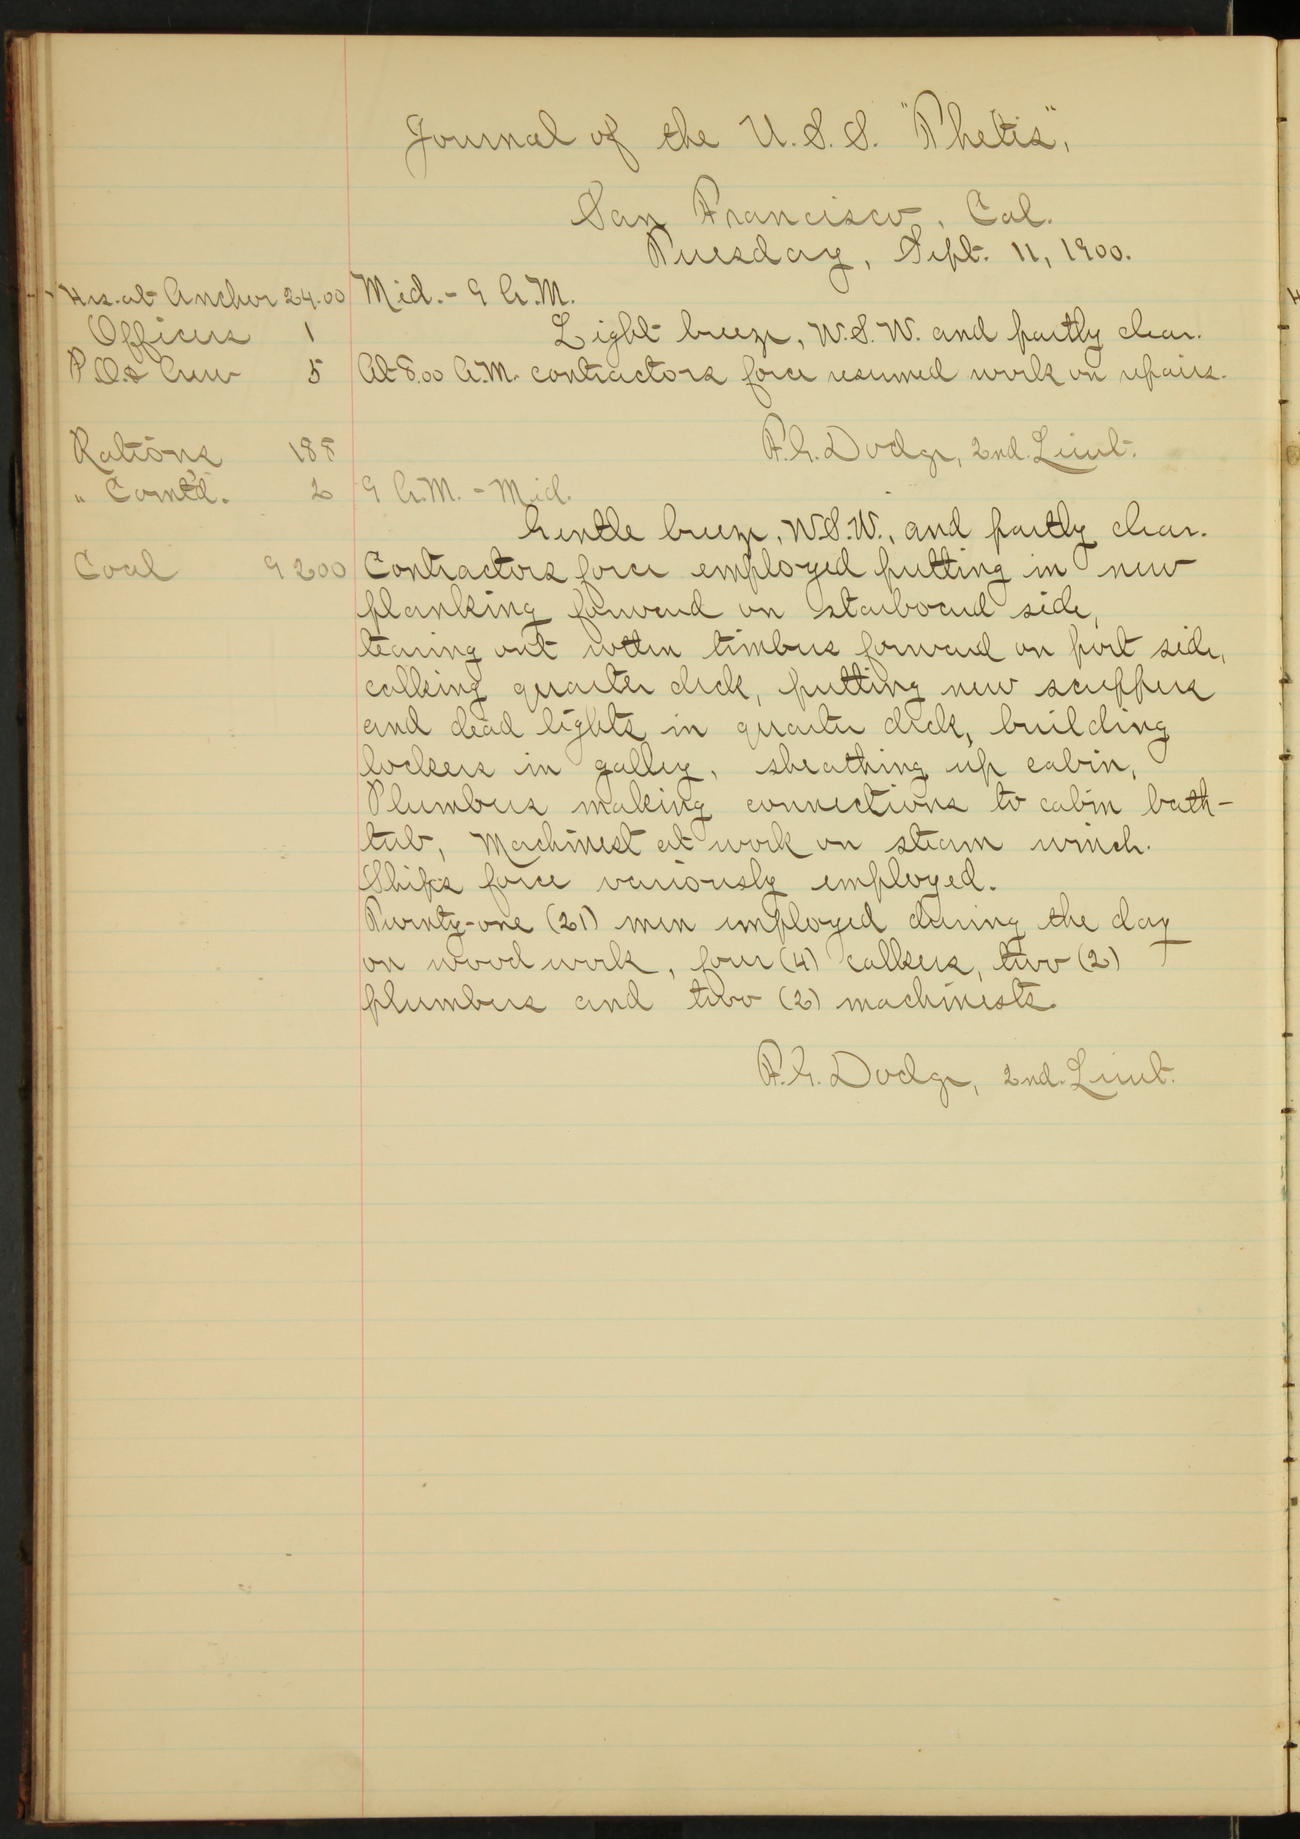 Journal of the U.S.S. "Thetis",
San Francisco, Cal.
Tuesday, Sept. 11, 1900.
Hrs. at Anchor 24.00 Mid. - 9 A.M.
Officers 1 Light breeze, W.S.W. and partly clear.
P.O.& Crew 5 At 8.00 A.M. contractors force resumed work on repairs.
Rations 188 F.G. Dodge, 2nd. Lieut.
" Com'td. 2 9 A.M. - Mid.
Gentle breeze, W.S.W., and partly clear.
Coal 9200 Contractors force employed putting in new
planking forward on starboard side,
tearing out rotten timbers forward on port side,
calking quarter deck, putting new scuppers
and dead lights in quarter deck, building
lockers in galley, sheathing up cabin,
Plumbers making connections to cabin bath-
tub, Machinest at work on steam winch.
Ships force variously employed.
Twenty-one (21) men employed during the day
on wood work, four (4) calkers, two (2)
plumbers and two (2) machinests.
F.G. Dodge, 2nd. Lieut.